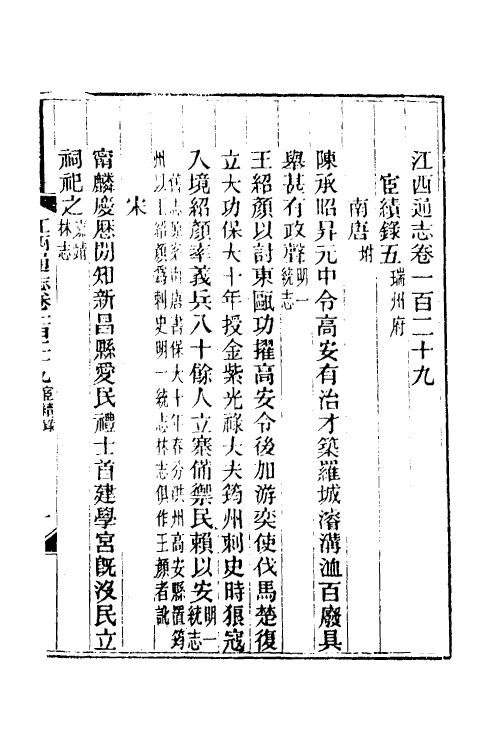 江西通志卷一百二十九
宦績錄五 瑞州府
南唐 坿
陳承昭昇元中令高安有治才築羅城濬溝洫百廢具
舉甚有政聲 明一統志
王紹顏以討東甌功擢高安令後加游奕使伐馬楚復
立大功保大十年授金紫光祿大夫筠州刺史時狼寇
入境紹顏率義兵八十餘人立寨備禦民賴以安 明一統志
舊志 南唐書保大十年春分洪州高安縣置筠
州以王紹顏為刺史明一統志林志俱作王顏者訛
宋
甯麟慶歷閒知新昌縣愛民禮士首建學宮旣沒民立
祠祀之 嘉靖林志
江西通志卷一百二十九 宦績錄 一